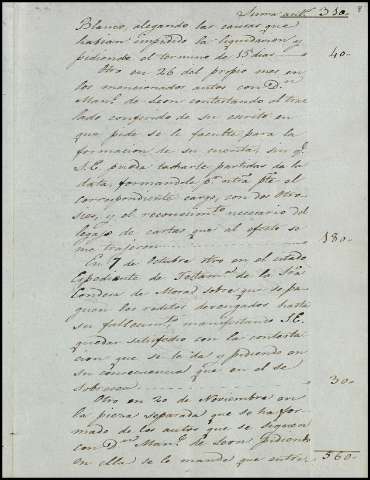 Suma antr. 310.
Blanco, alegando las causas que
habian impedido la liquidacion y
pidiendo el termino de 15 dias 40.
Otro en 26 del propio mes en
los mencionados autos con Dn.
Manl. de Leon contestando el tras
lado conferido de su escrito en
que pide se le faculte para la
formacion de su cuenta, sin qe.
S.E. pueda tacharle partidas de la
data, formandole pr. ntra pte. el
correspondiente cargo, con dos otro-
sies, y el reconocimto. necesario del
legajo de cartas que al efecto se
me trajeron 180.
En 7 de Octubre otro en el citado
Espediente de Testamta. de la Sra.
Condesa de Morad sobre que se pa-
guen los reditos devengados hasta
su fallecimto. manifestando S.E.
quedar satisfecho con la contesta
cion que se le da y pidiendo en
su consecuencia que en el se
sobresea 30.
Otro en 20 de Noviembre en
la pieza separada que se ha for-
mado de los autos que se siguen
con Dn. Manl. de Leon pidiendo
en ella se le mande que entre 560.